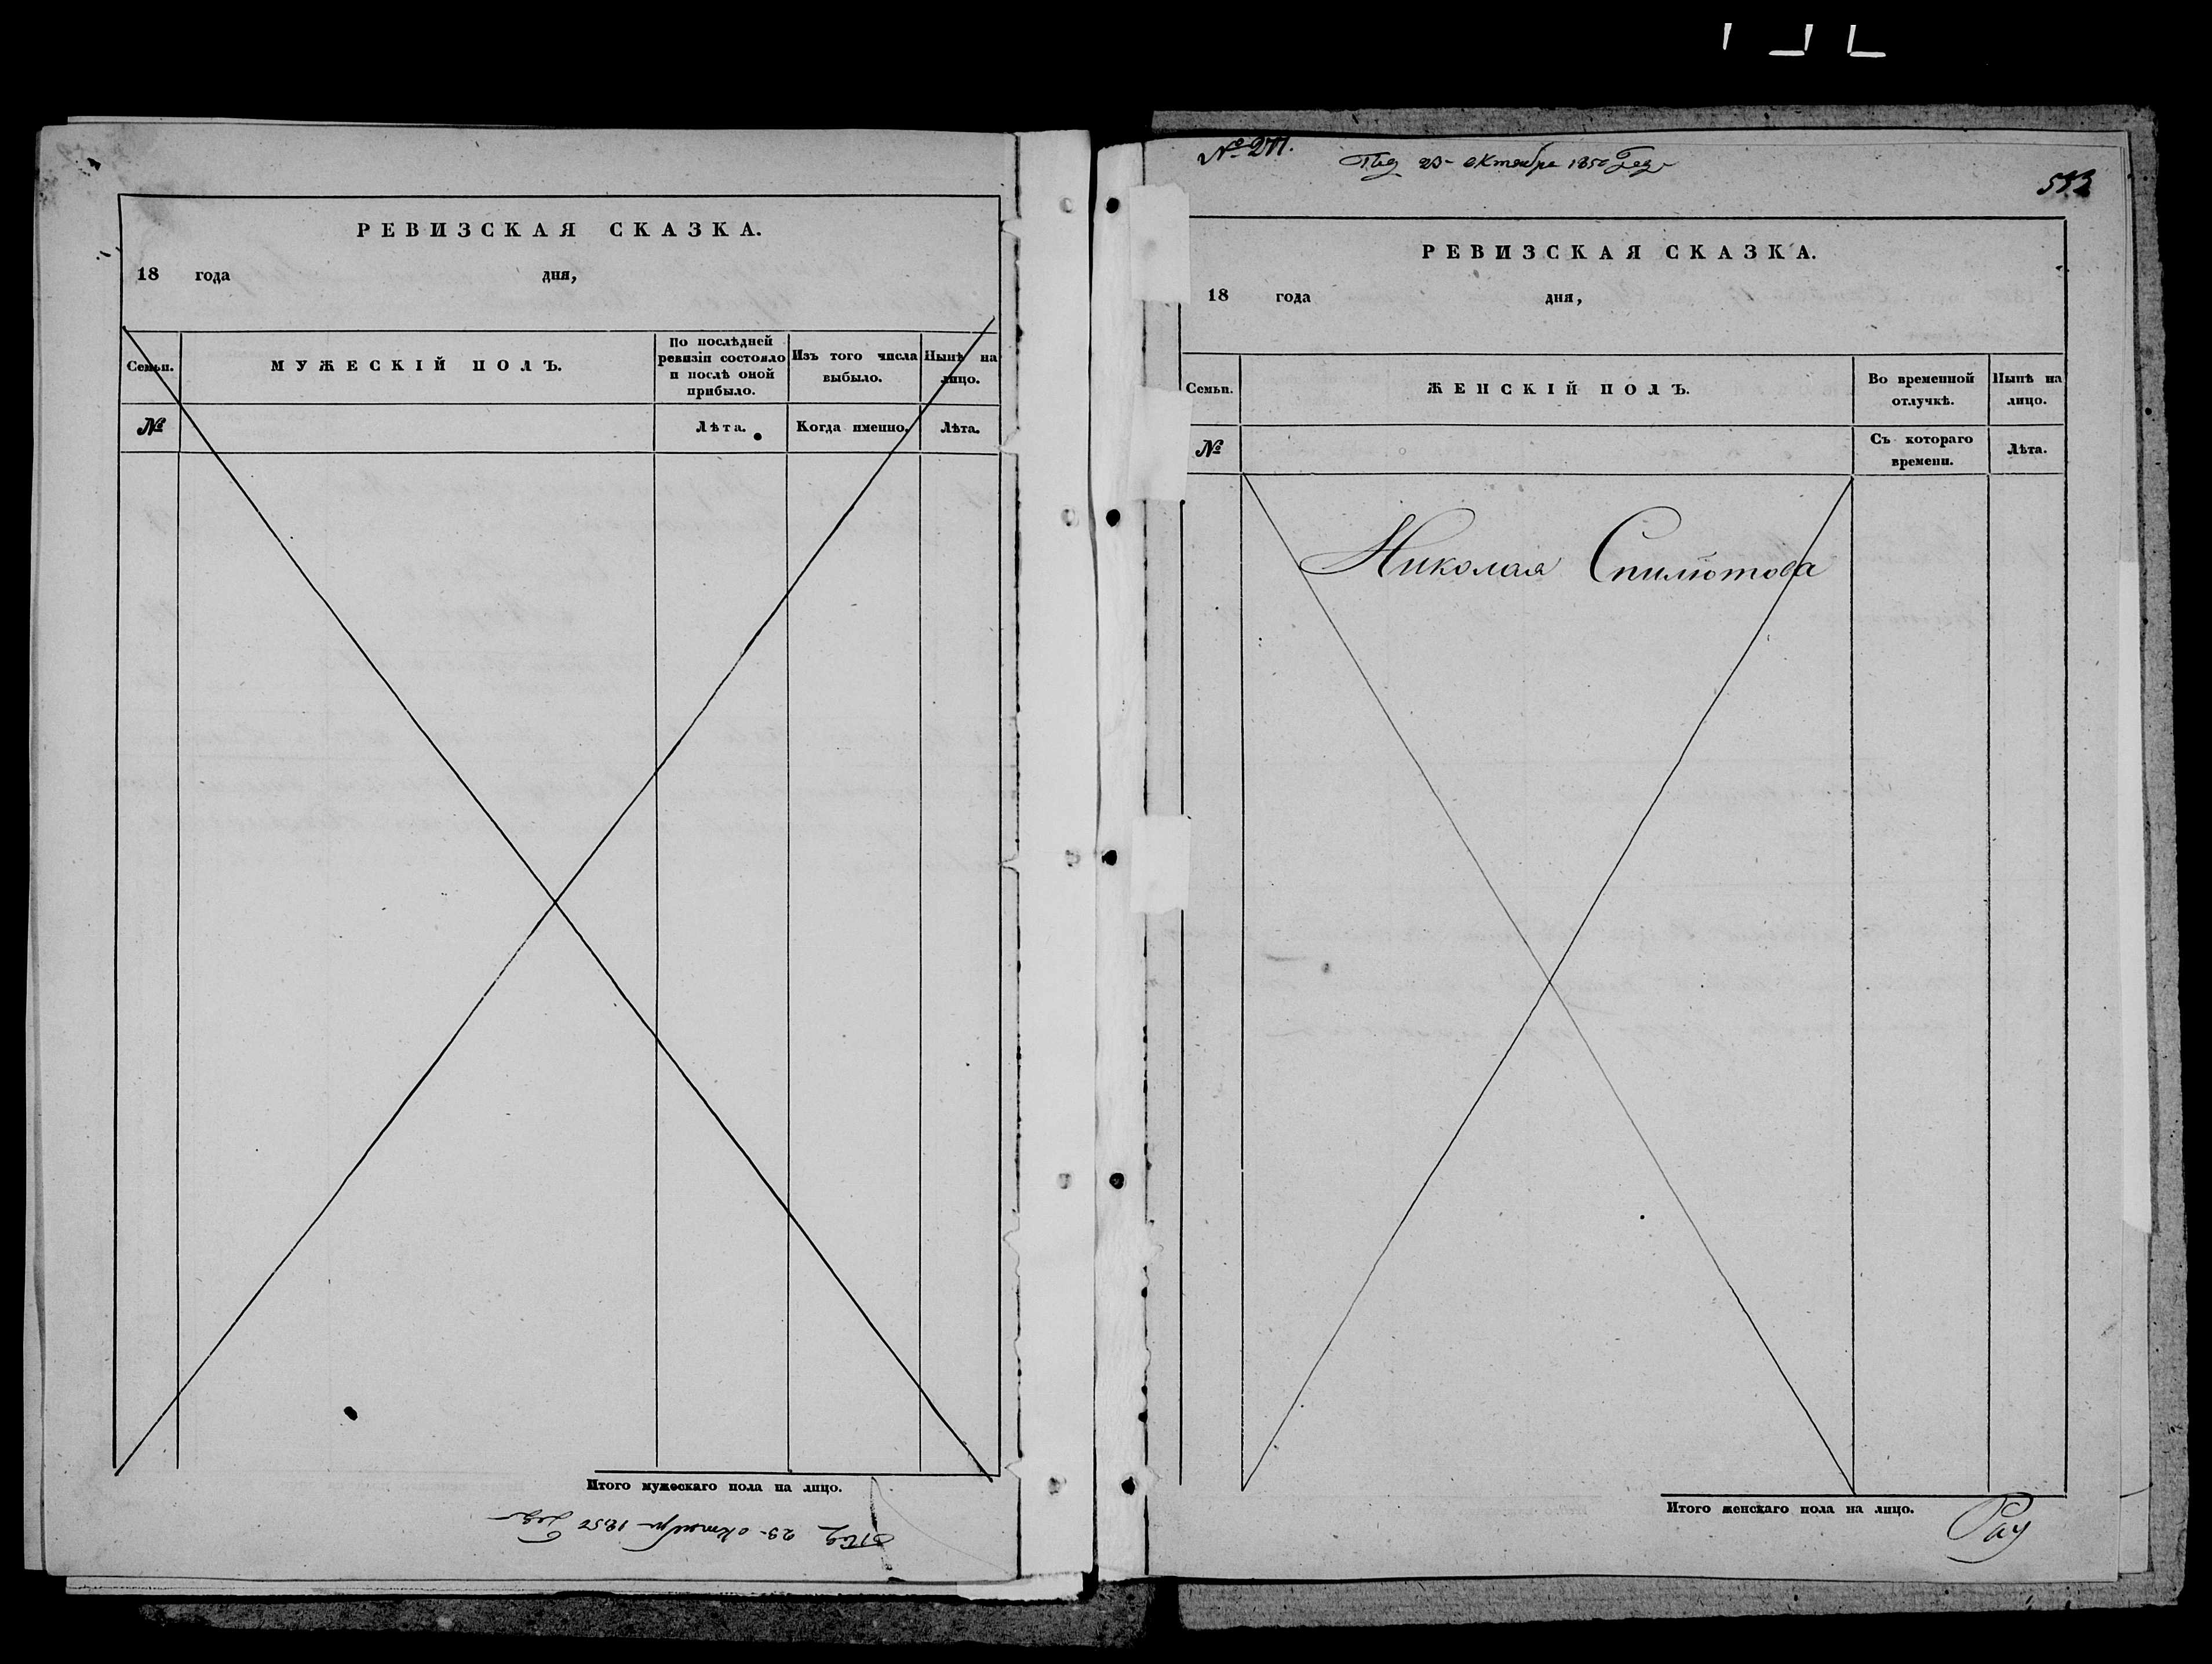 РЕВИЗСКАЯ СКАЗКА.
18 года дня,
Семьи.
МУЖЕСКІЙ ПОЛЪ.
По послѣдней ревизіи состояло и послѣ оной прибыло.
Изъ того числа выбыло.
Нынѣ на лицо.
№
Лѣта.
Когда именно.
Лѣта.
Итого мужескаго пола на лицо.
октября 1850
№ 271.
октября 1850
РЕВИЗСКАЯ СКАЗКА.
18 года дня,
Семьи.
ЖЕНСКІЙ ПОЛЪ.
Во временной отлучкѣ.
Нынѣ на лицо.
№
Съ котораго времени.
Лѣта.
Николая Спилиотова
Итого женскаго пола на лицо.